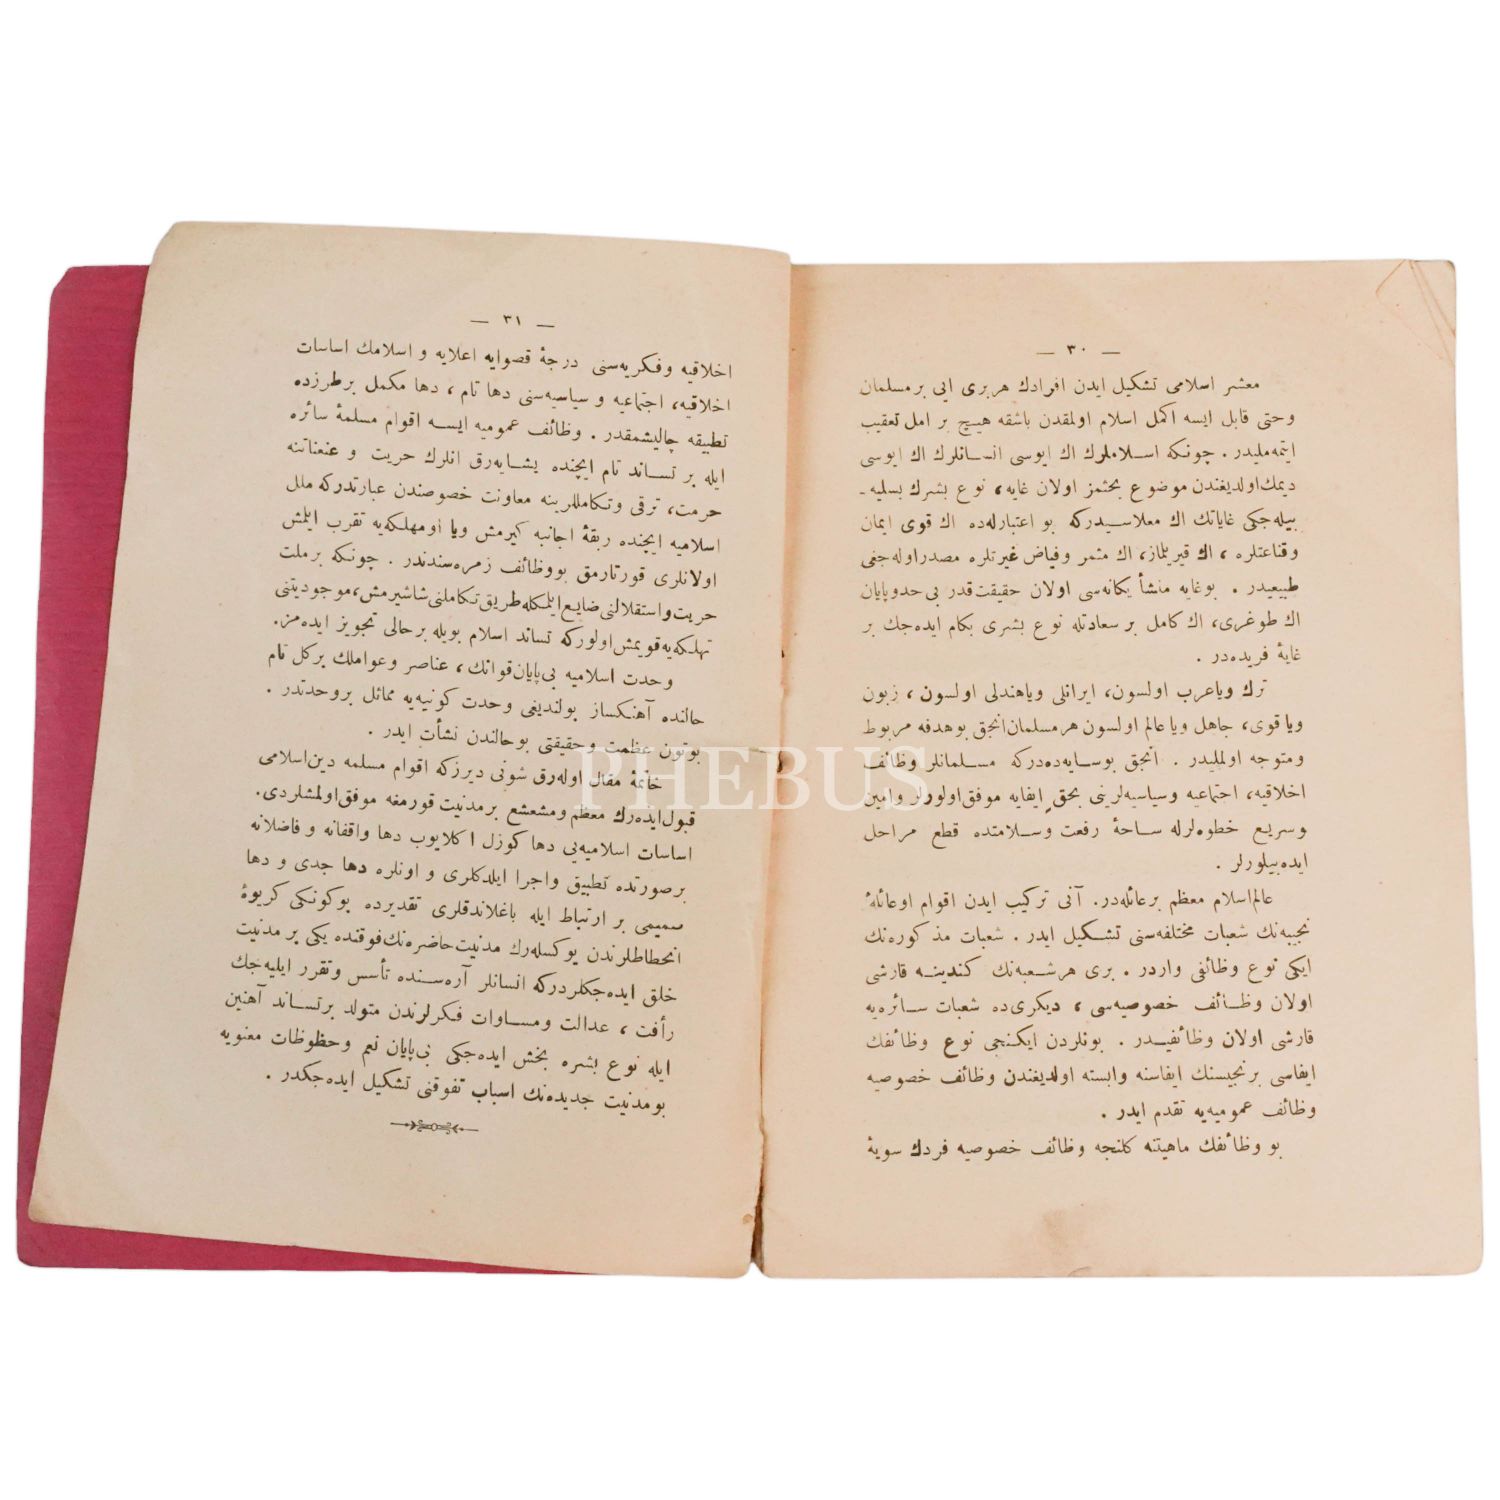 — ٣٠ —
معشر اسلامی تشكيل ايدن افرادك هربری ايی برمسلمان
وحتی قابل ايسه اكمل اسلام اولمقدن باشقه هيچ بر امل تعقيب
ايتمه‌مليدر . چونكه اسلاملرك اك ايوسی انسانلرك اك ايوسی
ديمك‌اولديغندن موضوع بحثمز اولان غايه، نوع بشرك بسليه-
بيله‌جكی غاياتك اك معلاسيدركه بو اعتبارله‌ده اك قوی ايمان
وقناعتلره ، اك قيريلماز، اك مثمر وفياض غيرتلره مصدراوله‌جغی
طبيعيدر . بوغايه منشأ يكانه‌سی اولان حقيقت‌قدر بی‌حدوپايان
اك طوغری، اك كامل بر سعادتله نوع بشری بكام ايده‌جك بر
غايهٔ فريده‌در .
ترك وياعرب اولسون، ايرانلی وياهندلی اولسون ، زبون
وياقوی، جاهل وياعالم اولسون هرمسلمان‌انجق بوهدفه مربوط
ومتوجه اولمليدر . انجق بوسايه‌ده‌دركه مسلمانلر وظائف
اخلاقيه، اجتماعيه وسياسيه‌لرينی بحق ايفايه موفق‌اولورلر وامين
وسريع خطوه‌لرله ساحهٔ رفعت وسلامتده قطع مراحل
ايده‌بيلورلر .
عالم‌اسلام معظم برعائله‌در. آنی تركيب ايدن اقوام اوعائلهٔ
نجيبه‌نك شعبات مختلفه‌سنی تشكيل ايدر . شعبات مذكوره‌نك
ايكی نوع وظائفی واردر . بری هرشعبه‌نك كندينه قارشی
اولان وظائف خصوصيه‌سی ، ديكری‌ده شعبات سائره‌يه
قارشی اولان وظائفيدر . بونلردن ايكنجی نوع وظائفك
ايفاسی برنجيسنك ايفاسنه وابسته اولديغندن وظائف خصوصيه
وظائف عموميه‌يه تقدم ايدر .
بو وظائفك ماهيتنه كلنجه وظائف خصوصيه فردك سويهٔ
— ٣١ —
اخلاقيه وفكريه‌سنی درجهٔ قصوايه اعلايه و اسلامك اساسات
اخلاقيه، اجتماعيه و سياسيه‌سنی دها تام ، دها مكمل برطرزده
تطبيقه چاليشمقدر . وظائف عموميه ايسه اقوام مسلمهٔ سائره
ايله بر تساند تام ايچنده يشايه‌رق انلرك حريت و عنعناتنه
حرمت، ترقی وتكاملرينه معاونت خصوصندن عبارتدركه ملل
اسلاميه ايچنده ربقهٔ اجانبه كيرمش ويا اومهلكه‌يه تقرب ايلمش
اولانلری قورتارمق بووظائف زمره‌سندندر . چونكه برملت
حريت‌واستقلالنی ضايع‌ايلمكله‌طريق‌تكاملنی‌شاشيرمش،موجوديتنی
تهلكه‌يه‌قويمش‌اولوركه تساند اسلام بويله برحالی تجويز ايده‌مز.
وحدت اسلاميه بی‌پايان‌قواتك ، عناصر وعواملك بركل تام
حالنده آهنكساز بولنديغی وحدت كونيه‌يه مماثل بروحدتدر .
بوتون عظمت وحقيقتی بوحالندن نشأت ايدر .
خاتمهٔ مقال اوله‌رق شونی ديرزكه اقوام مسلمه دين‌اسلامی
قبول‌ايده‌رك معظم ومشعشع برمدنيت قورمغه موفق‌اولمشلردی.
اساسات اسلاميه‌يی دها كوزل اكلايوب دها واقفانه و فاضلانه
برصورتده تطبيق واجرا ايلدكلری و اونلره دها جدی و دها
صميمی بر ارتباط ايله باغلاندقلری تقديرده بوكونكی كريوهٔ
انحطاطلرندن يوكسله‌رك مدنيت‌حاضره‌نك‌فوقنده يكی بر مدنيت
خلق ايده‌جكلردركه انسانلر آره‌سنده تأسس وتقرر ايليه‌جك
رأفت ، عدالت ومساوات فكرلرندن متولد برتساند آهنين
ايله نوع بشره بخش ايده‌جكی بی‌پايان نعم وحظوظات معنويه
بومدنيت جديده‌نك اسباب تفوقنی تشكيل ايده‌جكدر .
PHEBUS